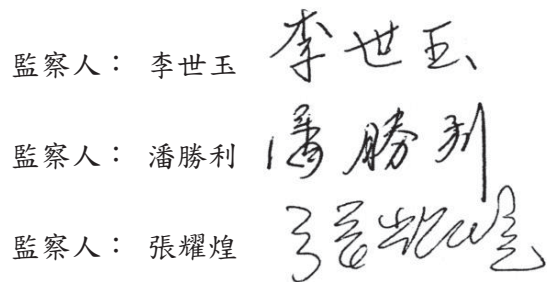 監察人： 李世玉 李世玉
監察人： 潘勝利 潘勝利
監察人： 張耀煌 張耀煌